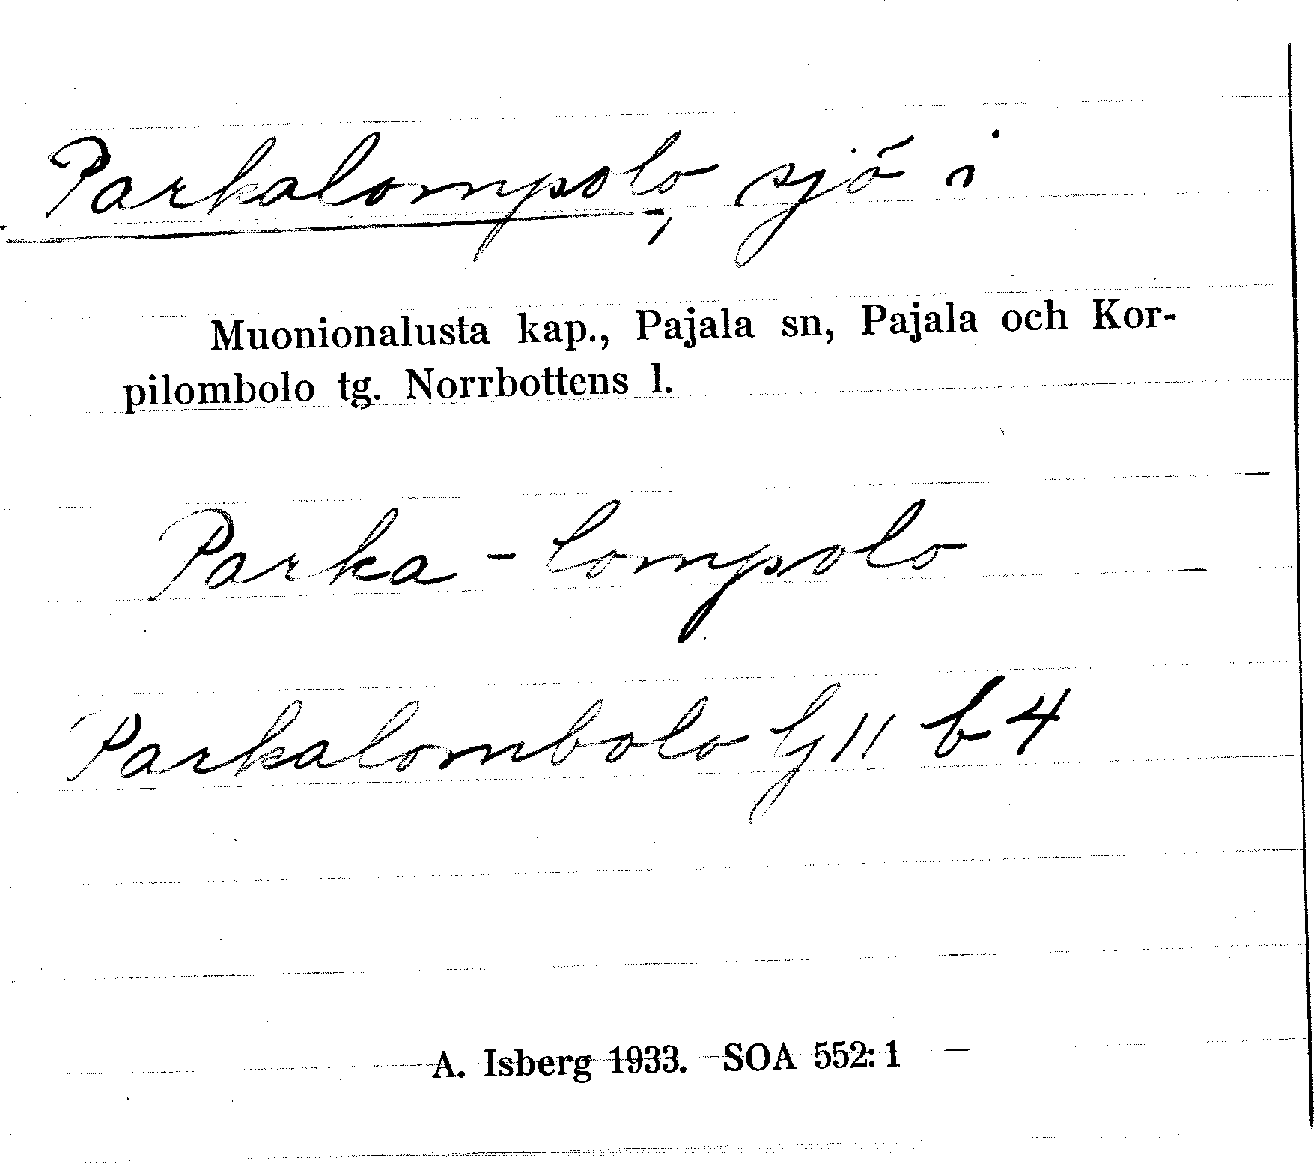 Parkalompolo, sjö i
Muonionalusta kap., Pajala sn, Pajala och Kor-
pilombolo tg. Norrbottens l.
Parka - lompolo
Parkalombolo G 11 b 4
A. Isberg 1933. SOA 552:1